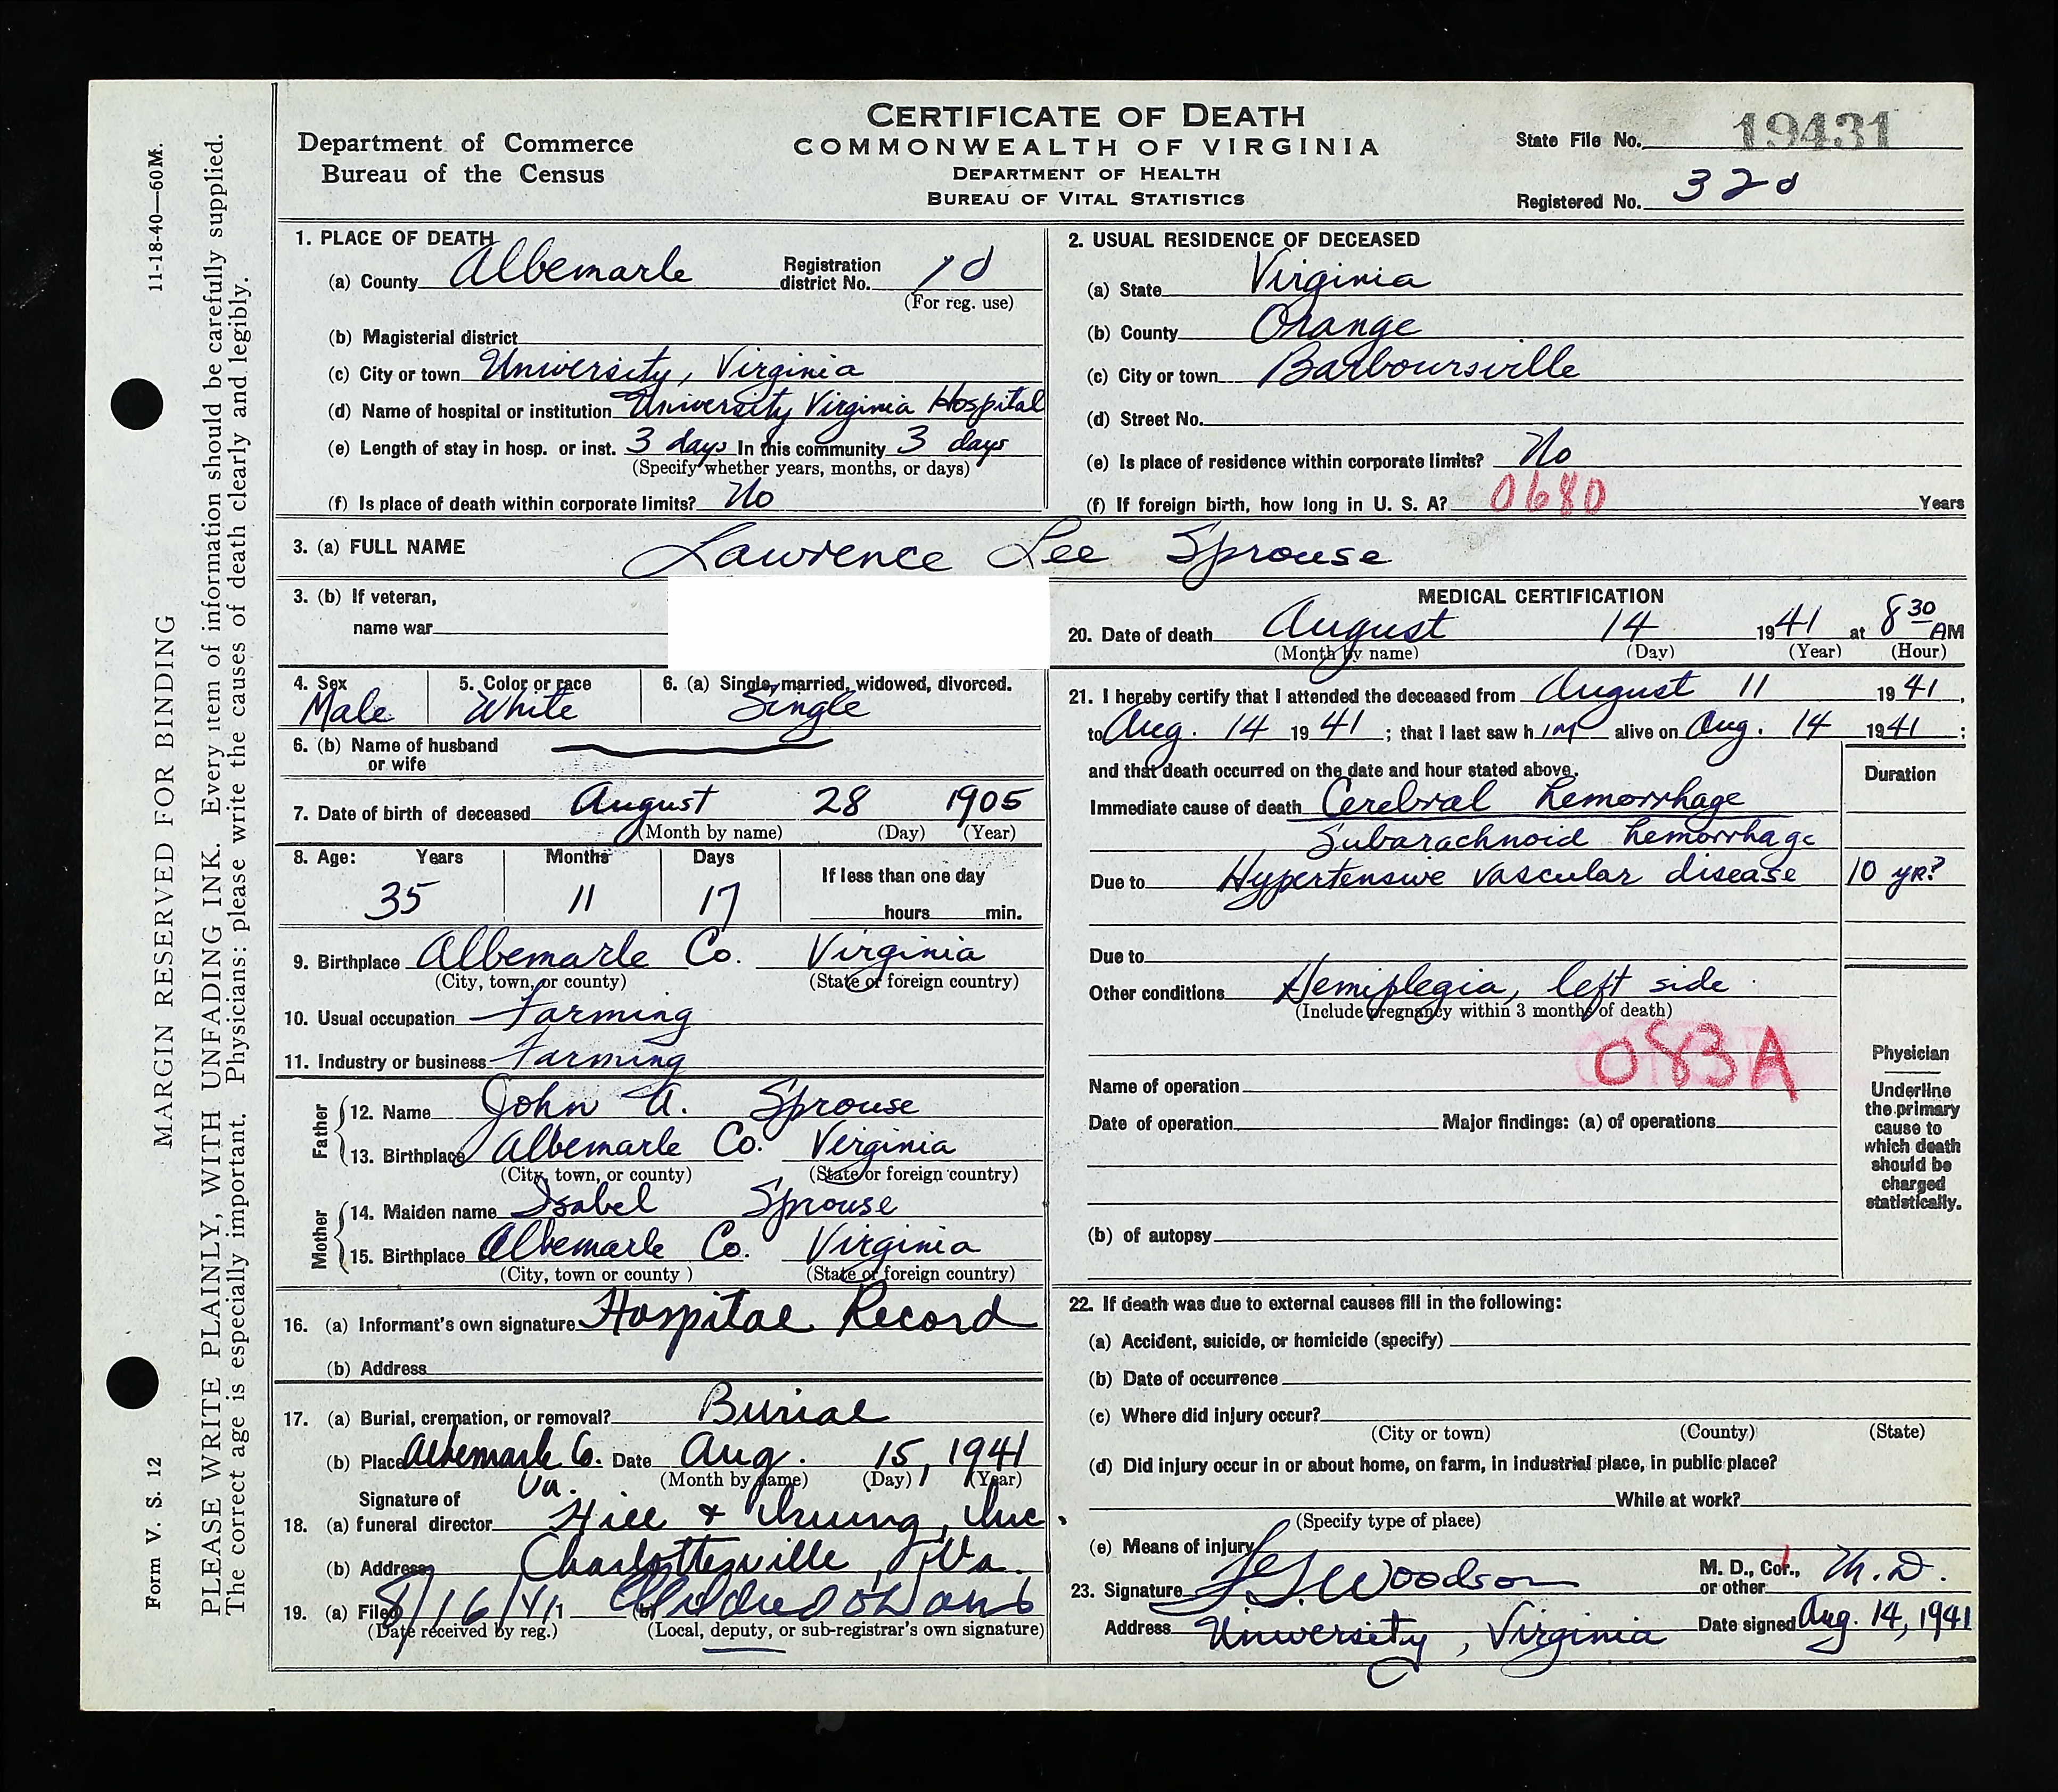 CERTIFICATE OF DEATH
COMMONWEALTH OF VIRGINIA
DEPARTMENT OF HEALTH
BUREAU OF VITAL STATISTICS
Department of Commerce
Bureau of the Census
State File No. 19431
Registered No. 320
11-18-40—60M.
MARGIN RESERVED FOR BINDING
Form V. S. 12
PLEASE WRITE PLAINLY, WITH UNFADING INK. Every item of information should be carefully supplied.
The correct age is especially important. Physicians: please write the causes of death clearly and legibly.
1. PLACE OF DEATH
(a) County Albemarle Registration district No. 1d
(For reg. use)
(b) Magisterial district
(c) City or town University, Virginia
(d) Name of hospital or institution University Virginia Hospital
(e) Length of stay in hosp. or inst. 3 days In this community 3 days
(Specify whether years, months, or days)
(f) Is place of death within corporate limits? No
2. USUAL RESIDENCE OF DECEASED
(a) State Virginia
(b) County Orange
(c) City or town Barboursville
(d) Street No.
(e) Is place of residence within corporate limits? No
(f) If foreign birth, how long in U. S. A? 0680 Years
3. (a) FULL NAME Lawrence Lee Sprouse
3. (b) If veteran,
name war
4. Sex Male
5. Color or race White
6. (a) Single, married, widowed, divorced. Single
6. (b) Name of husband
or wife
7. Date of birth of deceased August 28 1905
(Month by name) (Day) (Year)
8. Age: Years Months Days If less than one day
35 11 17 hours min.
9. Birthplace Albemarle Co. Virginia
(City, town, or county) (State or foreign country)
10. Usual occupation Farming
11. Industry or business Farming
Father
12. Name John A. Sprouse
13. Birthplace Albemarle Co. Virginia
(City, town, or county) (State or foreign country)
Mother
14. Maiden name Isabel Sprouse
15. Birthplace Albemarle Co. Virginia
(City, town or county ) (State or foreign country)
16. (a) Informant's own signature Hospital Record
(b) Address
17. (a) Burial, cremation, or removal? Burial
(b) Place Albemarle Co. Va. Date Aug. 15, 1941
(Month by name) (Day) (Year)
Signature of
18. (a) funeral director Hill & Irving, Inc.
(b) Address Charlottesville, Va.
19. (a) Filed 8/16/41 (b)
(Date received by reg.) (Local, deputy, or sub-registrar's own signature)
MEDICAL CERTIFICATION
20. Date of death August 14 1941 at 8 30 AM
(Month by name) (Day) (Year) (Hour)
21. I hereby certify that I attended the deceased from August 11 1941,
to Aug. 14 1941; that I last saw h im alive on Aug. 14 1941;
and that death occurred on the date and hour stated above.
Duration
Immediate cause of death Cerebral hemorrhage
Subarachnoid hemorrhage
Due to Hypertensive vascular disease 10 yr?
Due to
Other conditions Hemiplegia, left side
(Include pregnancy within 3 months of death)
083A
Name of operation
Date of operation Major findings: (a) of operations
(b) of autopsy
Physician
Underline
the primary
cause to
which death
should be
charged
statistically.
22. If death was due to external causes fill in the following:
(a) Accident, suicide, or homicide (specify)
(b) Date of occurrence
(c) Where did injury occur?
(City or town) (County) (State)
(d) Did injury occur in or about home, on farm, in industrial place, in public place?
While at work?
(Specify type of place)
(e) Means of injury
23. Signature Woodson M. D., Cor., or other M.D.
Address University, Virginia Date signed Aug. 14, 1941